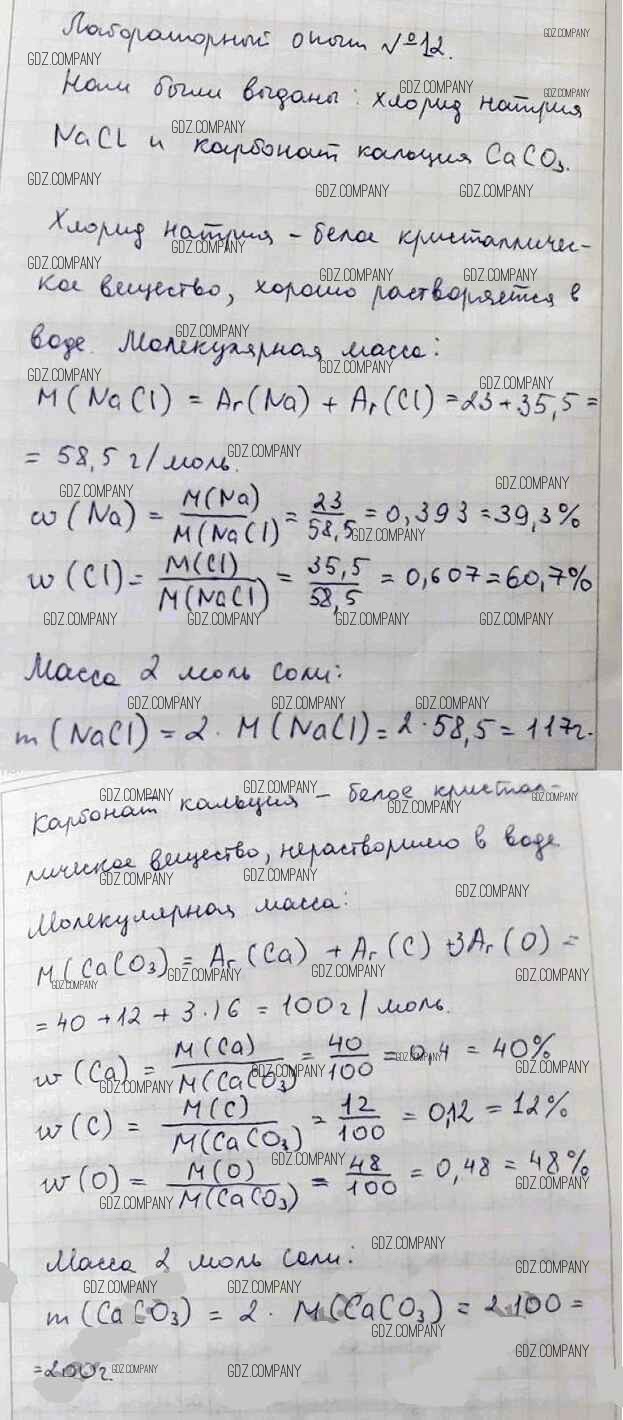 Лабораторный опыт №12.
Нам были выданы: хлорид натрия
NaCl и карбонат кальция CaCO₃.
Хлорид натрия – белое кристалличес-
кое вещество, хорошо растворяется в
воде. Молекулярная масса:
M(NaCl) = Ar(Na) + Ar(Cl) = 23 + 35,5 =
= 58,5 г/моль.
w(Na) = M(Na)/M(NaCl) = 23/58,5 = 0,393 = 39,3%
w(Cl) = M(Cl)/M(NaCl) = 35,5/58,5 = 0,607 = 60,7%
Масса 2 моль соли:
m(NaCl) = 2 · M(NaCl) = 2 · 58,5 = 117г.
Карбонат кальция – белое кристал-
лическое вещество, нерастворимо в воде
Молекулярная масса:
M(CaCO₃) = Ar(Ca) + Ar(C) + 3Ar(O) =
= 40 + 12 + 3·16 = 100 г/моль.
w(Ca) = M(Ca)/M(CaCO₃) = 40/100 = 0,4 = 40%
w(C) = M(C)/M(CaCO₃) = 12/100 = 0,12 = 12%
w(O) = M(O)/M(CaCO₃) = 48/100 = 0,48 = 48%
Масса 2 моль соли:
m(CaCO₃) = 2 · M(CaCO₃) = 2·100 =
= 200г.
GDZ.COMPANY